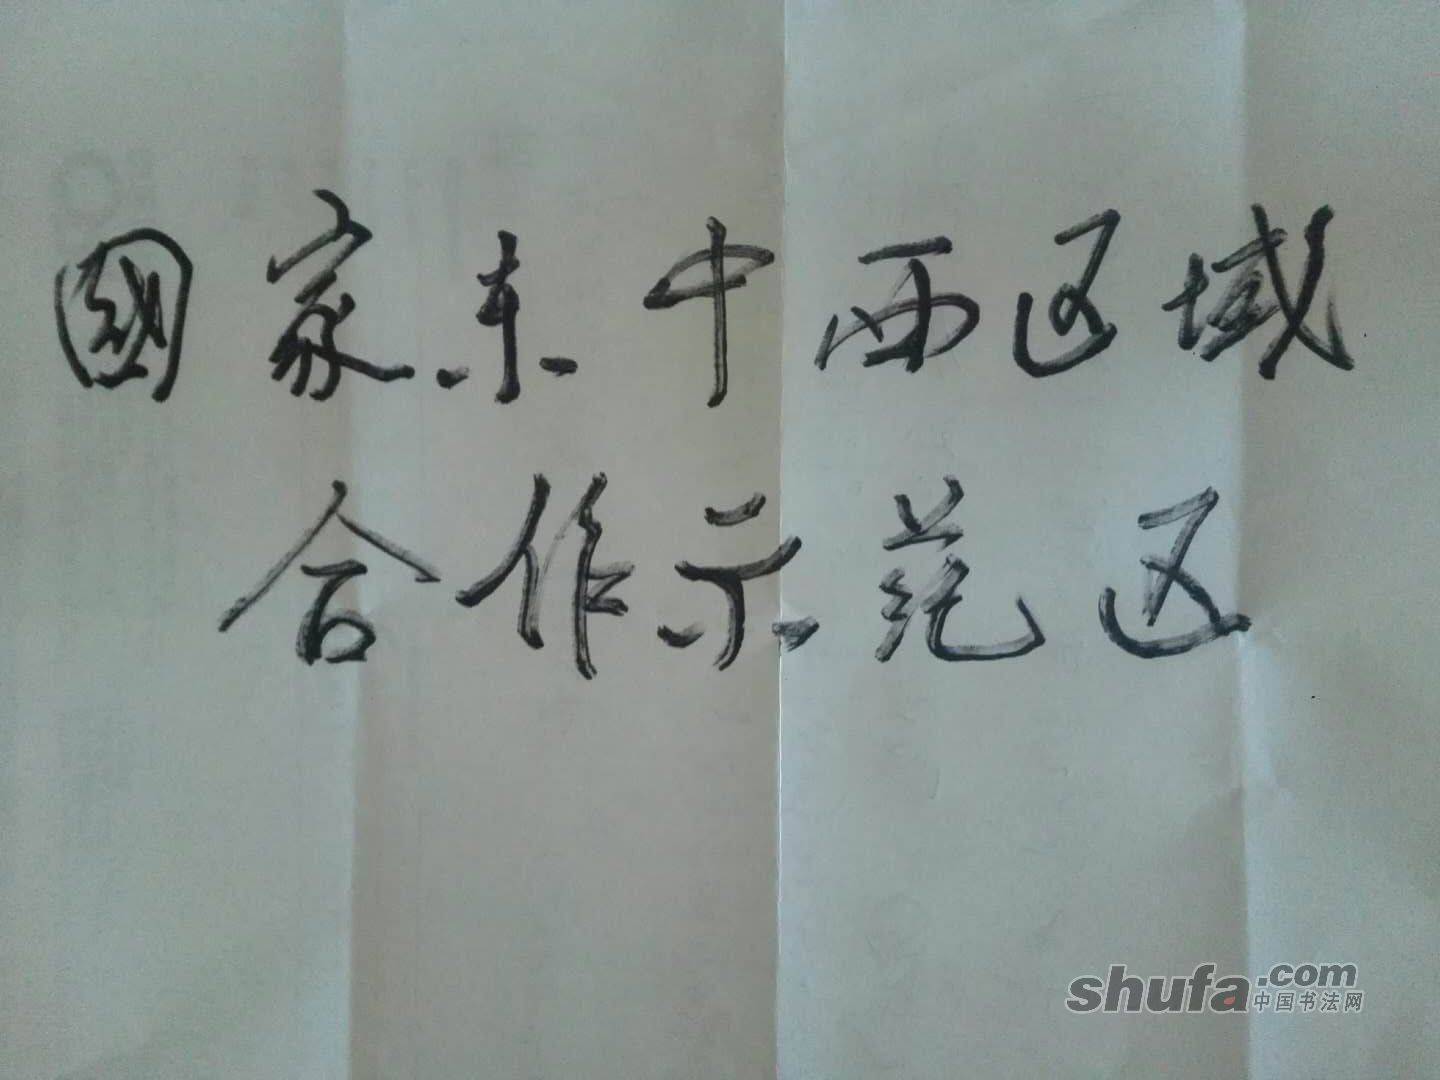 國家东中西区域
合作示范区
shufa.com
中国书法网